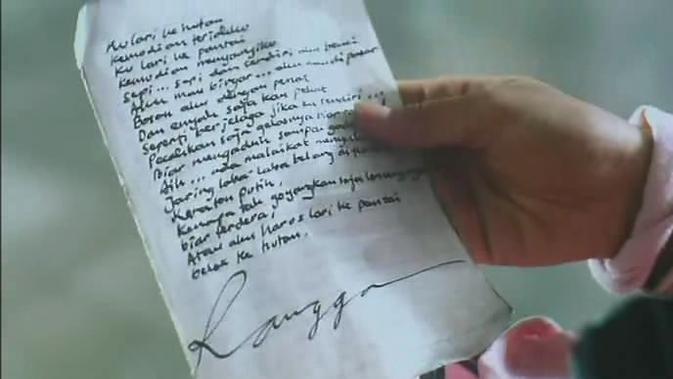 Ku lari ke hutan
kemudian teriakku
Ku lari ke pantai
kemudian menyanyiku
Sepi... sepi dan sendiri aku benci
Aku mau bingar... aku mau di pasar
Bosan aku dengan penat
Dan enyah saja kau pekat
Seperti berjelaga jika ku sendiri...
Pecahkan saja gelasnya
Biar mengaduh sampai
Aih... ada malaikat
jaring laba-laba belang di
Keraton putih,
Kenapa tak goyangkan saja
biar terdera;
Atau aku harus lari ke pantai
belok ke hutan.
Rangga